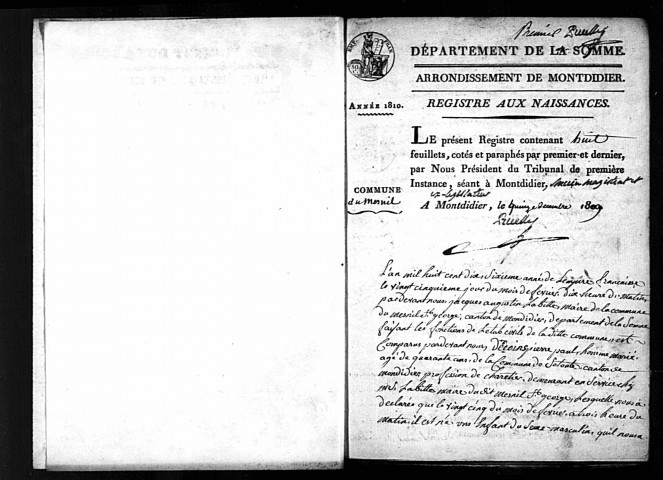 Premier Pucelle
DÉPARTEMENT DE LA SOMME.
ARRONDISSEMENT DE MONTDIDIER.
ANNÉE 1810.
REGISTRE AUX NAISSANCES.
LE présent Registre contenant huit
feuillets, cotés et paraphés par premier et dernier,
par Nous Président du Tribunal de première
Instance, séant à Montdidier, ancien magistrat et
ex Législateur
COMMUNE
du Mesnil
A Montdidier, le quinze decembre 1809
Pucelle
L'an mil huit cent dix Sixieme année de L'empire francaise
le vingt cinquieme jour du mois de fevrier dix heure du Matin
par devant nous jacques augustin Labitte Maire de la commune
du mesnil St george, canton de mondidier, departement de la Somme
faisant les fonctions de L'etat civile de la ditte commune, est
Comparus par devant nous pierre paul homme marié
agé de quarante ans de la Commune de canton de
mondidier profession de charetier, demeurant en Service chez
Mr Labitte maire du dit mesnil St george, Lesquelle nous à
declarés que le vingt cinq du mois de fevrier a trois heure du
matin, il est né une Enfant du Sexe masculin, qu'il nous a